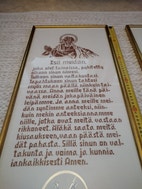 Isä meidän,
joka olet taivaissa, pyhitetty
olkoon sinun nimesi.
tulkoon sinun valtakuntasi
tapahtukoon sinun tahtosi
myös maan päällä niin kuin tai-
vaassa. Anna meille tänä päivänä
meidän jokapäiväinen
leipämme. Ja anna meille mei-
dän syntimme anteeksi, niin
kuin mekin anteeksi annamme
niille, jotka ovat meitä vastaan
rikkoneet. Äläkä saata meitä
kiusaukseen, vaan päästä mei-
dät pahasta. Sillä sinun on val-
takunta ja voima ja kunnia
iankaikkisesti Amen.